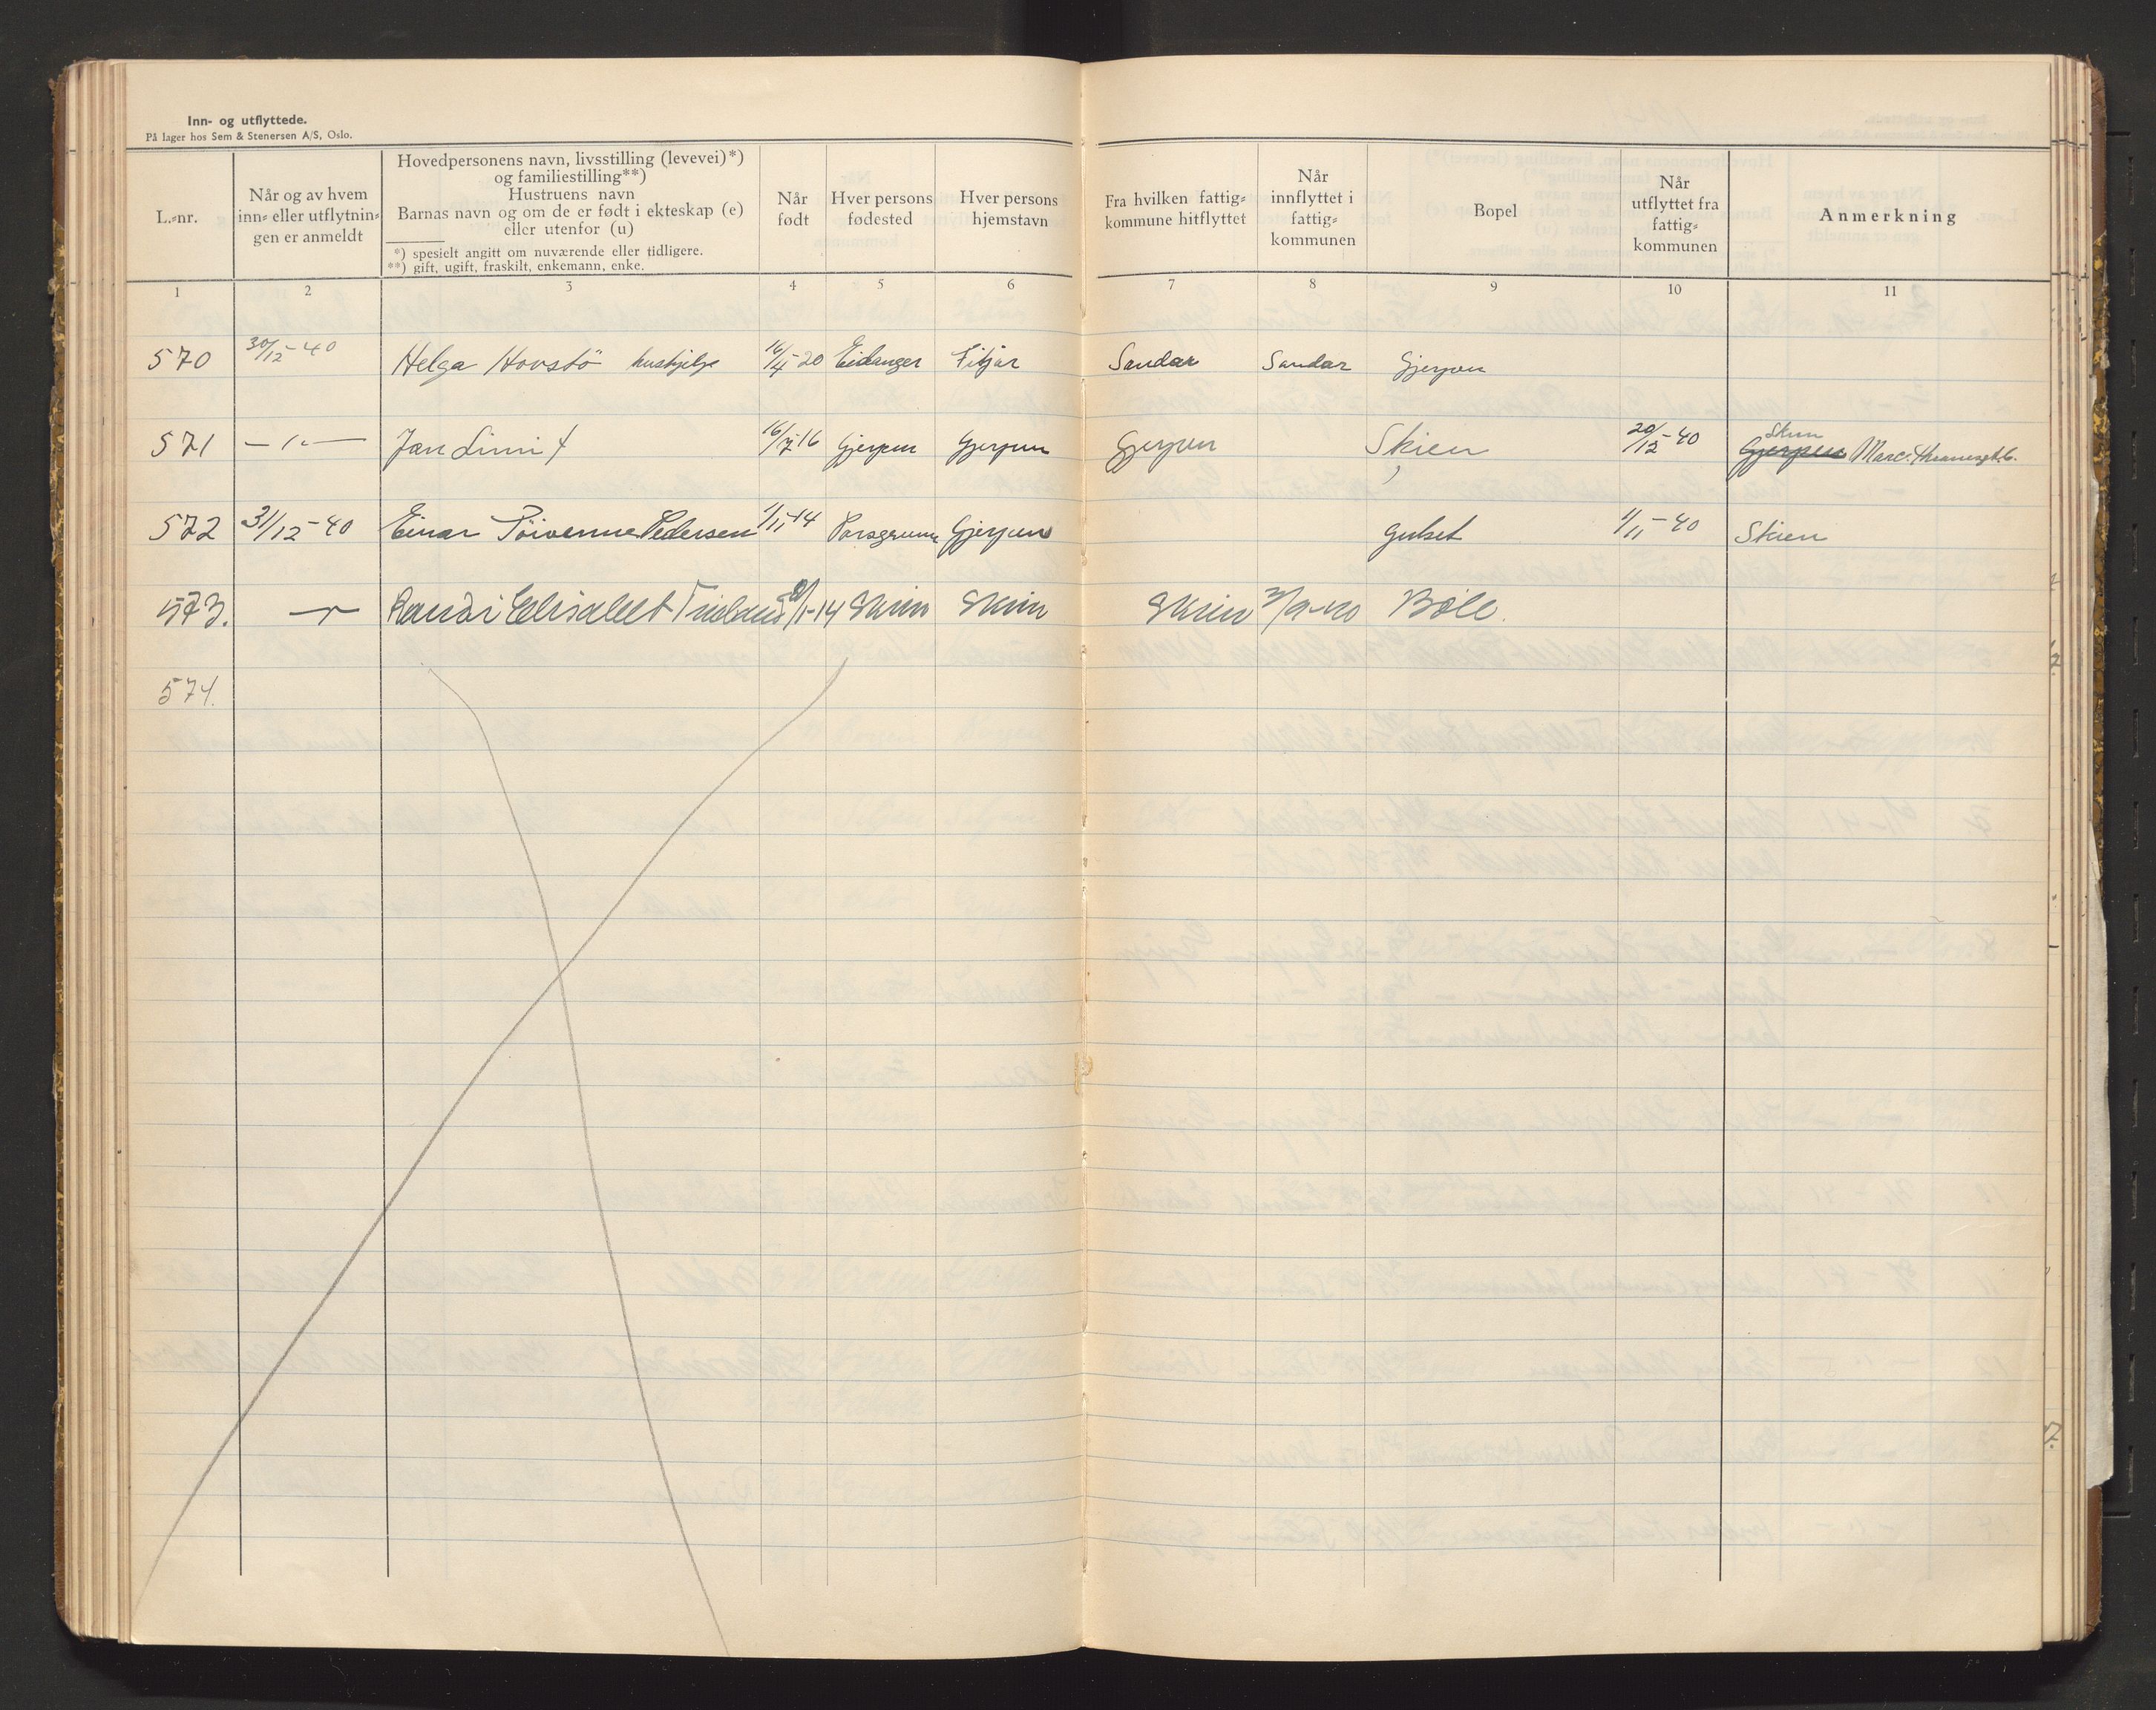 Inn- og utflyttede.
På lager hos Sem & Stenersen A/S, Oslo.
L.-nr.
Når og av hvem
inn- eller utflytnin-
gen er anmeldt
Hovedpersonens navn, livsstilling (levevei)*)
og familiestilling**)
Hustruens navn
Barnas navn og om de er født i ekteskap (e)
eller utenfor (u)
*) spesielt angitt om nuværende eller tidligere.
**) gift, ugift, fraskilt, enkemann, enke.
Når
født
Hver persons
fødested
Hver persons
hjemstavn
Fra hvilken fattig-
kommune hitflyttet
Når
innflyttet i
fattig-
kommunen
Bopel
Når
utflyttet fra
fattig-
kommunen
Anmerkning
1 2 3 4 5 6 7 8 9 10 11
570 30/12-40 Helga Hovstö hushjelp 16/4-20 Eidanger Fitjar Sandar Sandar Gjerpen
571 — " — Jan 16/7-16 Gjerpen Gjerpen Gjerpen Skien 20/12-40 Skien
Gjerpen Marc. Thranesgt. 6.
572 31/12-40 Einar Pedersen 1/11-14 Porsgrunn Gjerpen Gulset 1/11-40 Skien
573. — " — Randi Elisabet /1-14 Skien Skien Skien 3/9-40 Böle.
574.